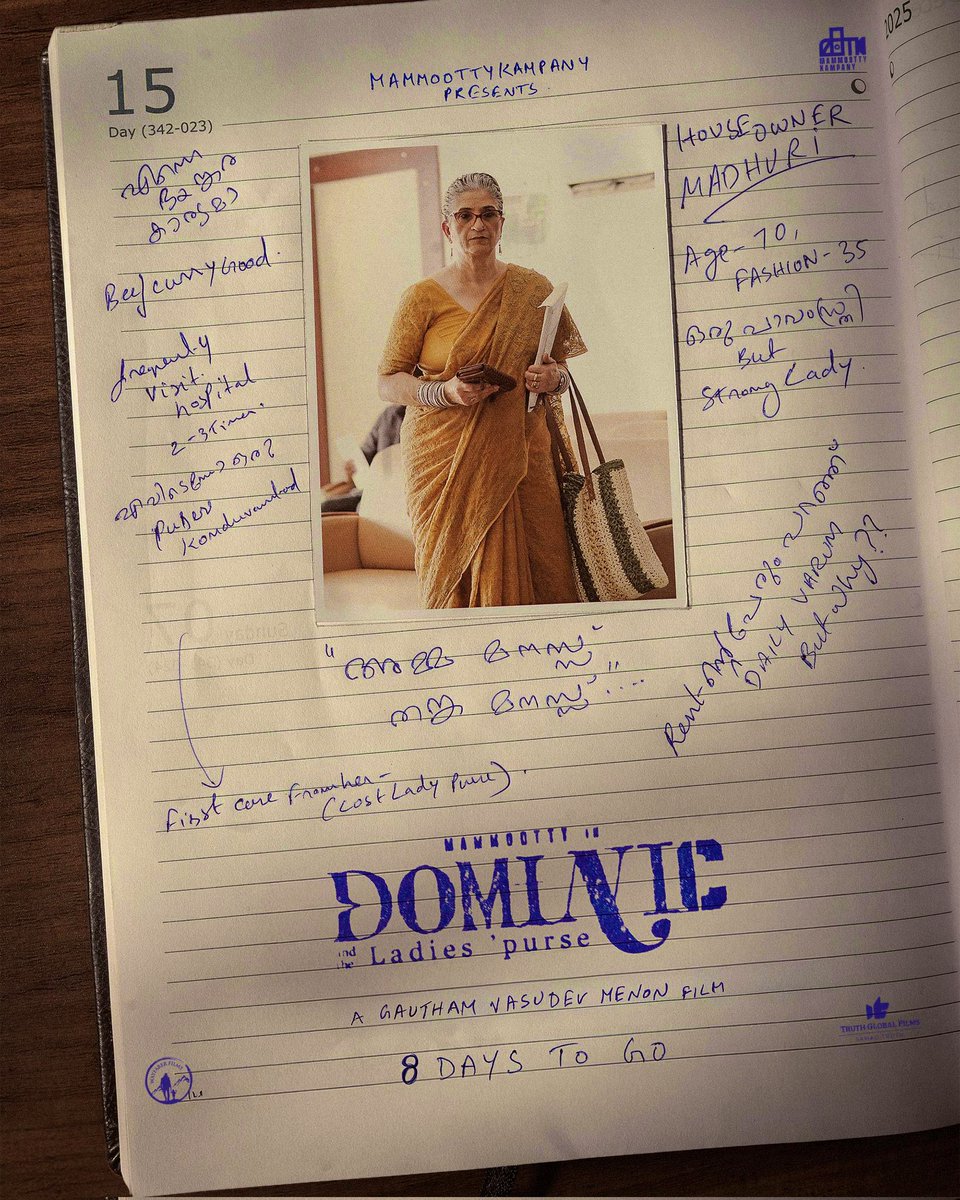 15
Day (342-023)
MAMMOOTTYKAMPANY
PRESENTS.
MAMMOOTTY
KAMPANY
2025
HOUSEOWNER
MADHURI
Age-70,
FASHION-35
ഒരു പാവം സ്ത്രീ
But
Strong Lady.
Beef curry Good.
frequently
visit.
hospital
2-3 Times.
Purse
Konduvannod
Rent
DAILY VARUM
But why??
"അമ്മ മനസ്സ്
തങ്ക മനസ്സ്"....
First case From her-
(Lost Lady Purse).
MAMMOOTTY IN
DOMINIC
and the Ladies 'purse
A GAUTHAM VASUDEV MENON FILM
8 DAYS TO GO
TRUTH GLOBAL FILMS
WAYFARER FILMS